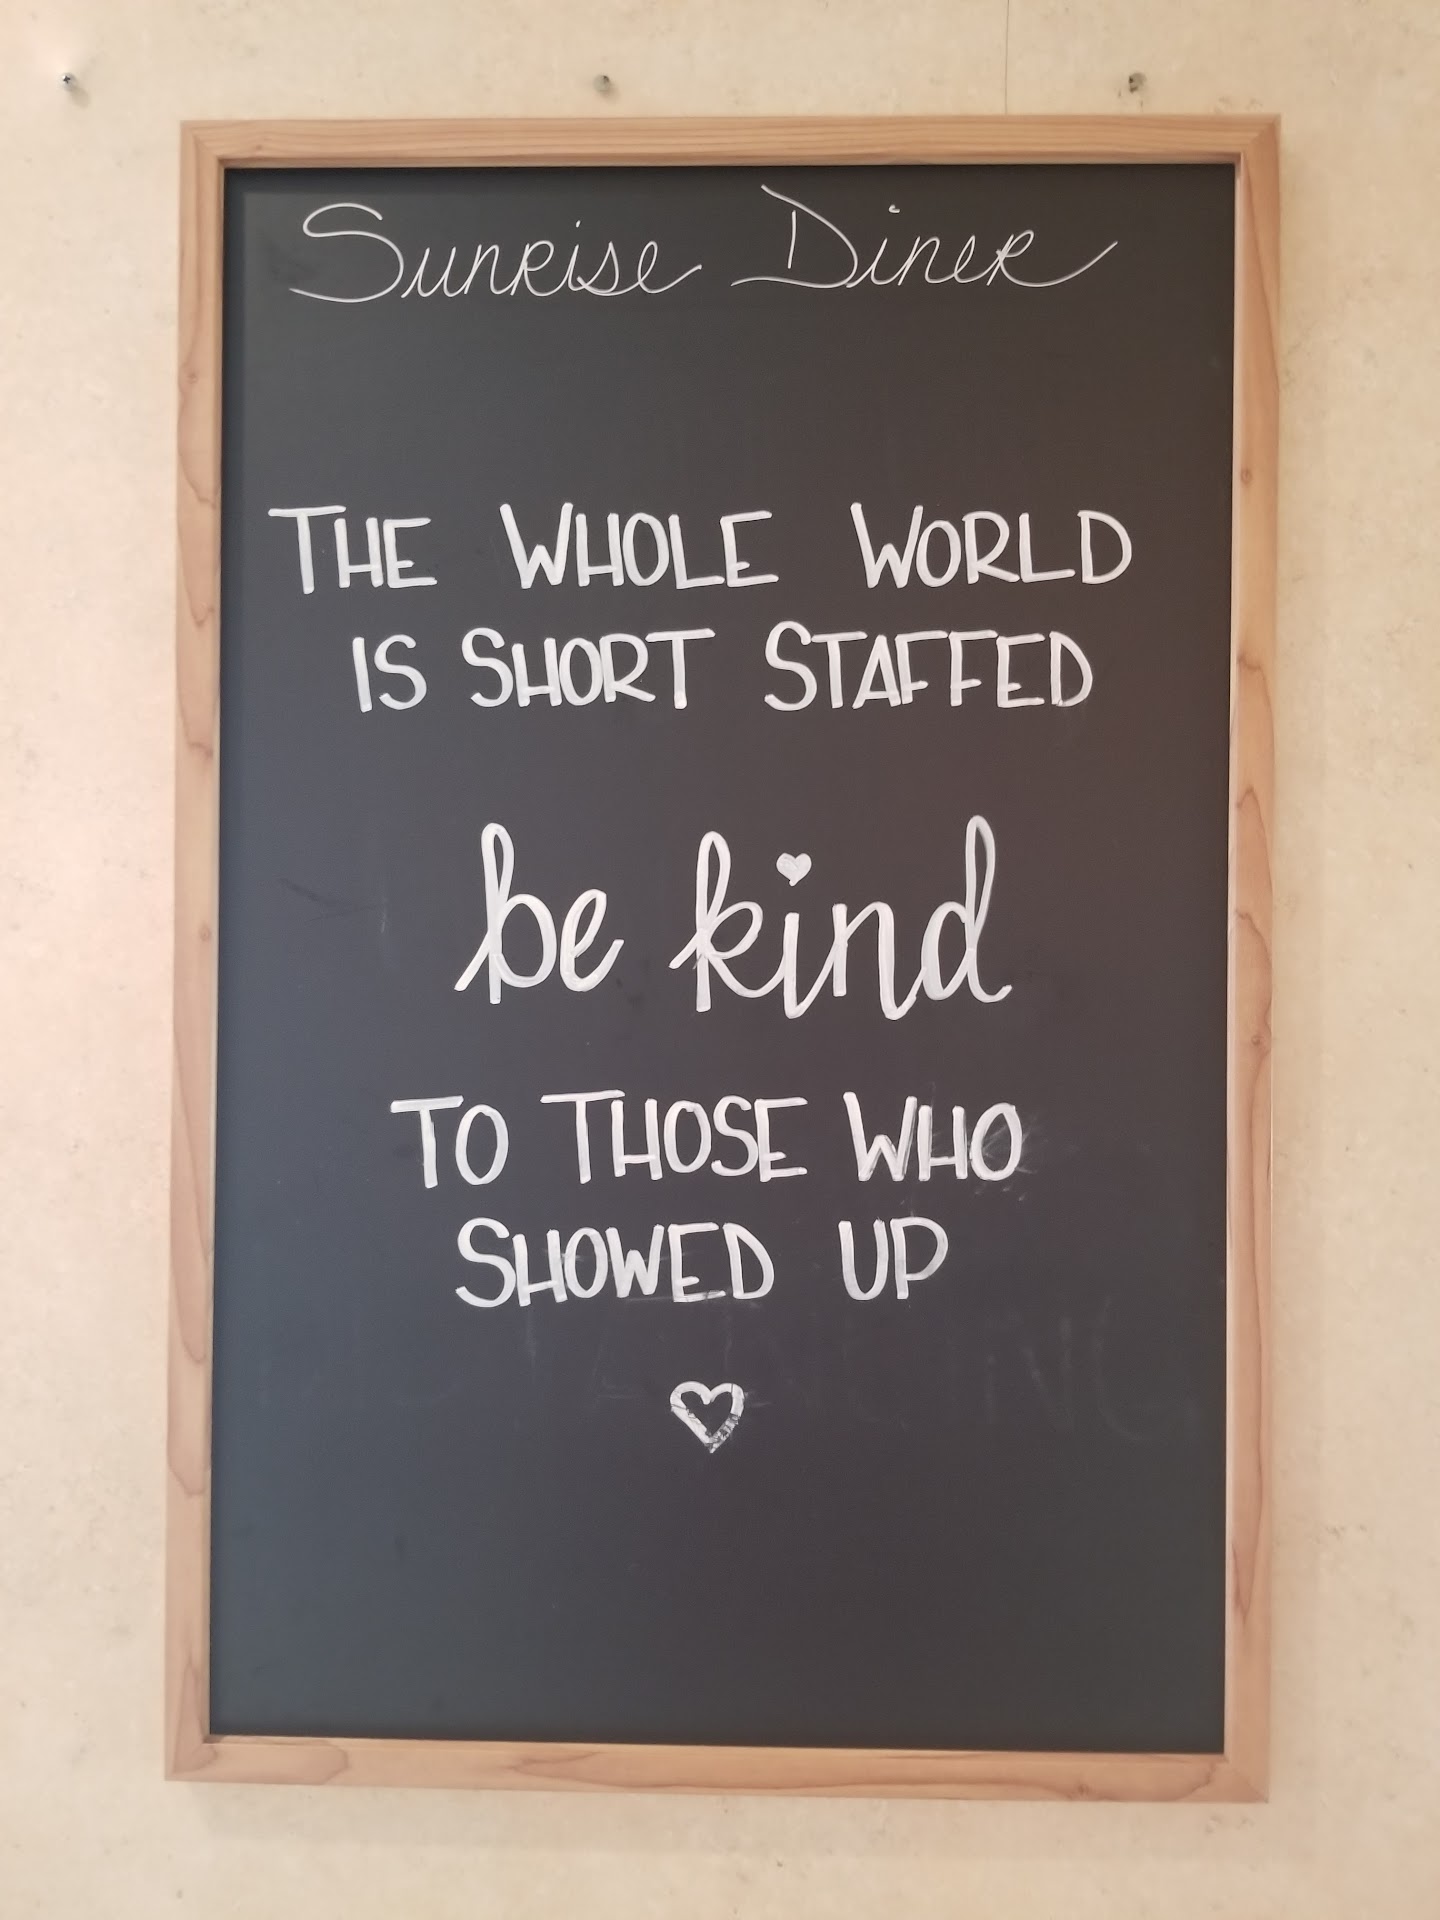 Sunrise Diner
THE WHOLE WORLD
IS SHORT STAFFED
be kind
TO THOSE WHO
SHOWED UP